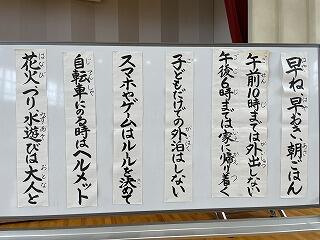 早ね、早おき、朝ごはん
午前10時までは外出しない
午後6時までには家に帰り着く
子どもだけでの外泊はしない
スマホやゲームはルールを決めて
自転車にのる時はヘルメット
花火、つり、水遊びは大人と